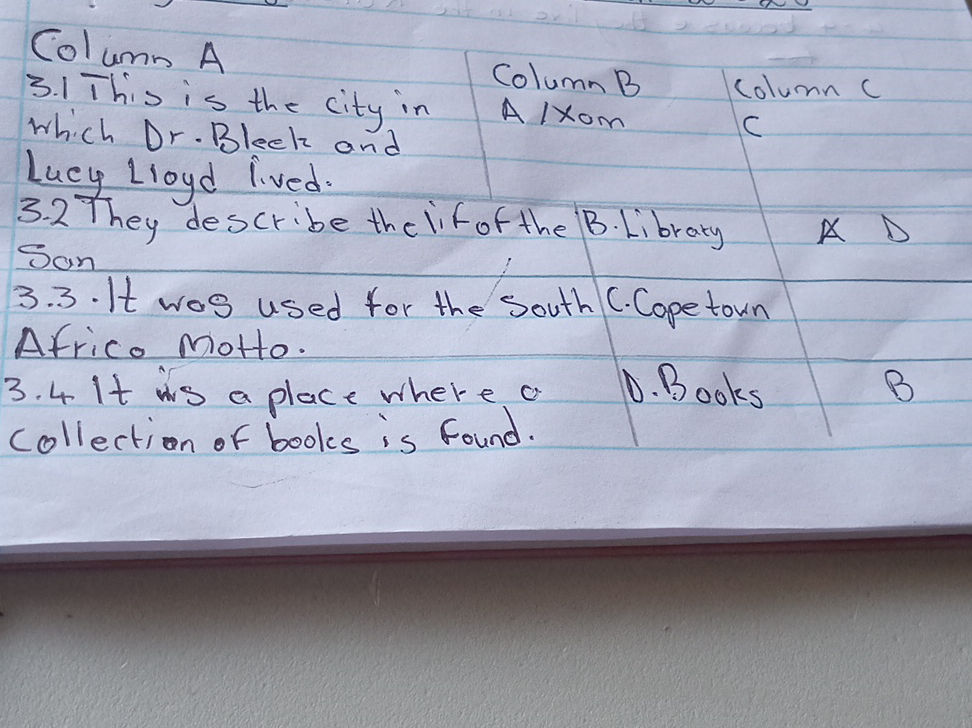 Column A
Column B
Column C
3.1 This is the city in
A /Xam
C
which Dr. Bleek and
Lucy Lloyd lived.
3.2 They describe the lif of the
B. Library
A D
San
3.3. It was used for the South
C. Cape town
Africa Motto.
3.4 It is a place where a
D. Books
B
collection of books is found.